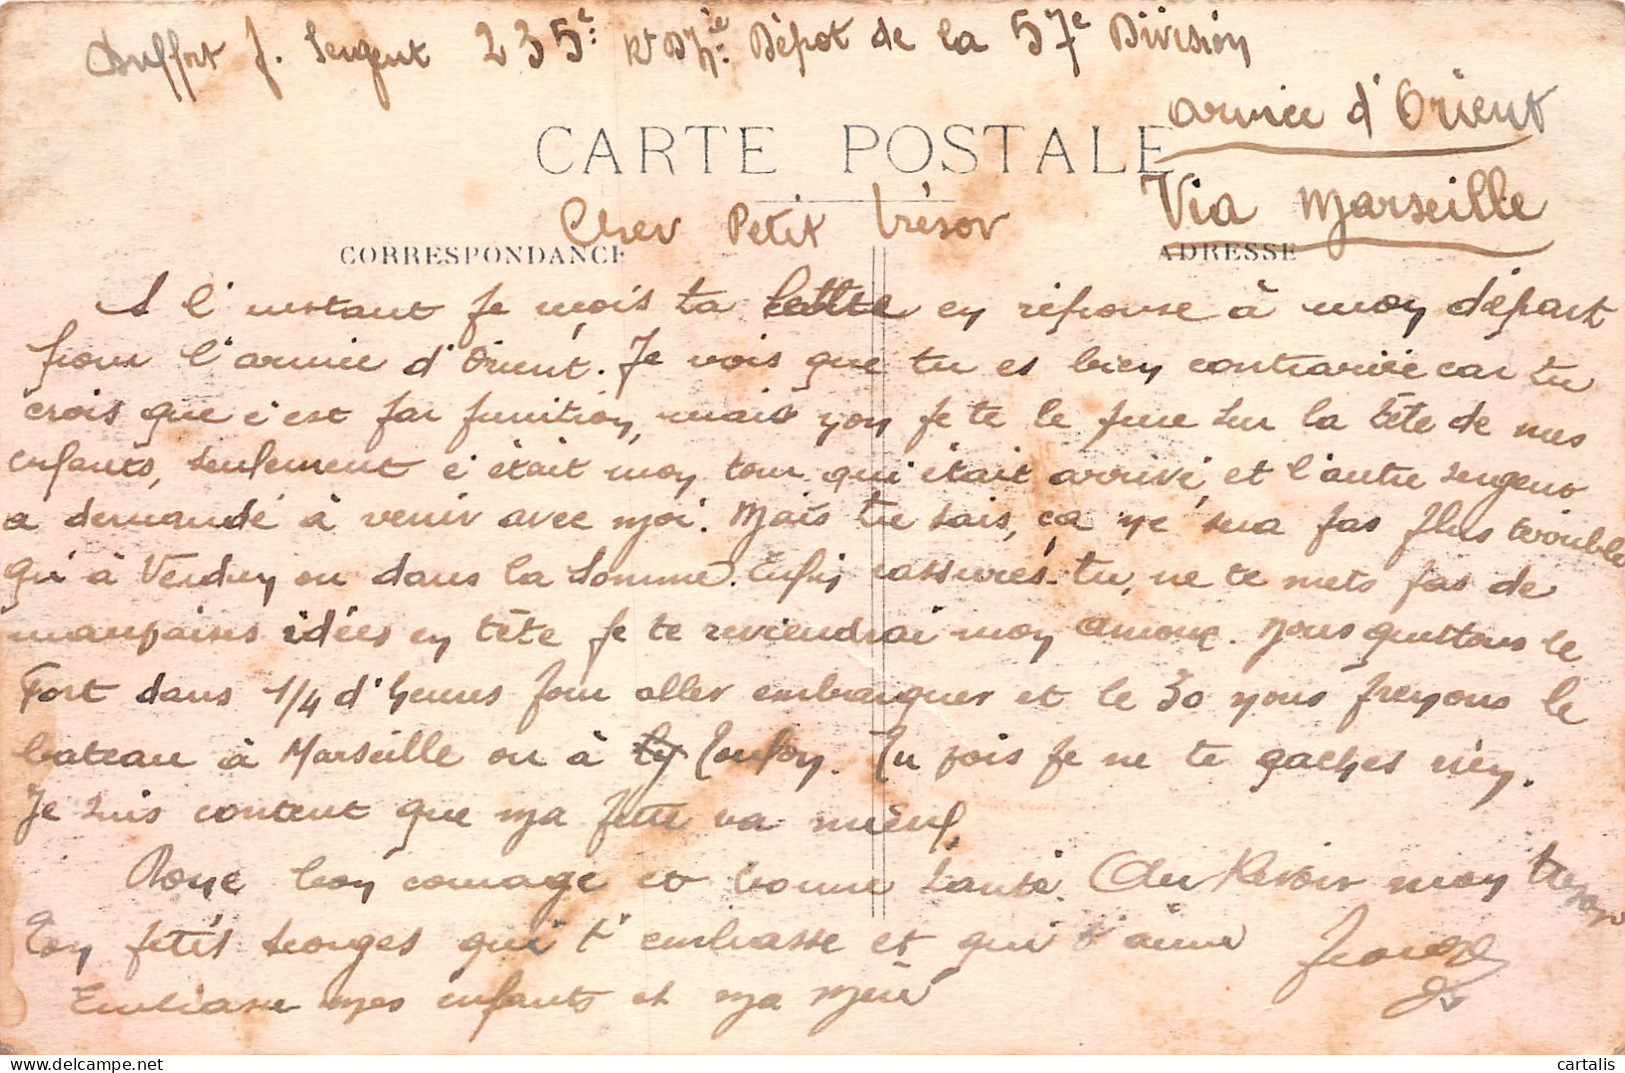 Duffort J. Sergent 235e Rt D'Ie Dépot de la 57e Division
armée d'Orient
CARTE POSTALE
Via Marseille
Cher Petit trésor
CORRESPONDANCE
ADRESSE
A l'instant je reçois ta lettre en réponse à mon départ
pour l'armée d'Orient. Je vois que tu es bien contrariée car tu
crois que c'est par punition, mais non je te le jure sur la tête de nos
enfants, seulement c'était mon tour qui était arrivé, et l'autre sergent
a demandé à venir avec moi. Mais tu sais, ça ne sera pas plus terrible
qu'à Verdun ou dans la Somme. Enfin rassures-tu, ne te mets pas de
mauvaises idées en tête je te reviendrai mon amour. Nous quittons le
Fort dans 1/4 d'heures pour aller embarquer et le 30 nous prenons le
bateau à Marseille ou à Toulon. Tu vois je ne te caches rien.
Je suis content que ma petite va mieux,
bon courage et bonne santé. Au Revoir mon trésor
Ton petit Georges qui t'embrasse et qui t'aime
Embrasse mes enfants et ma mère
cartalis